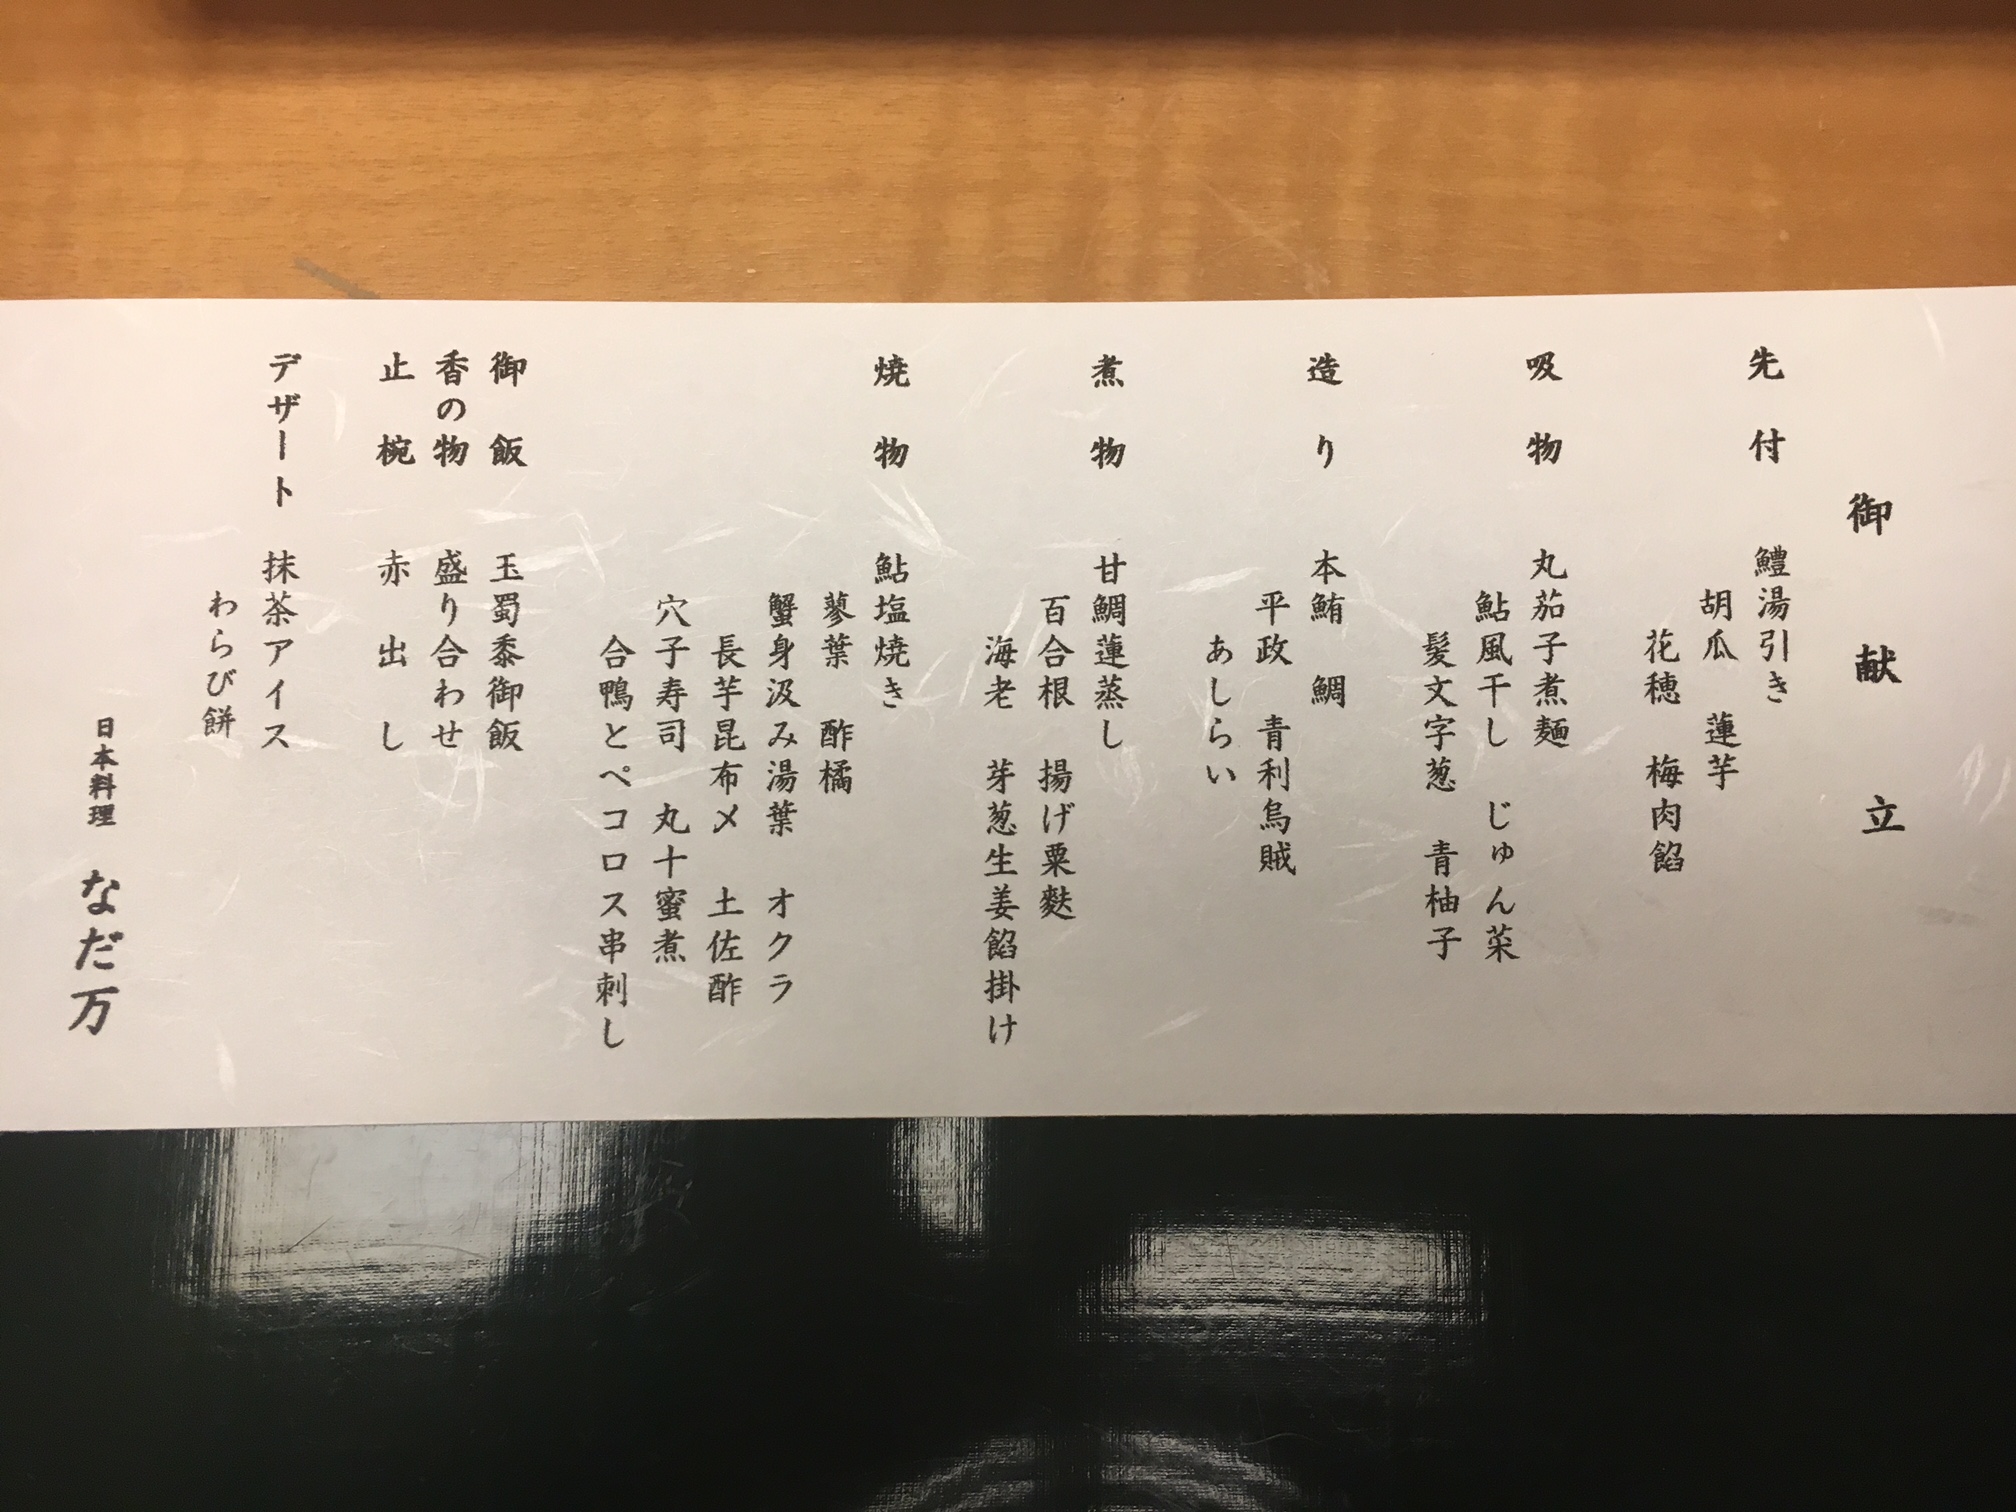 御献立
先付 鱧湯引き
胡瓜 蓮芋
花穂 梅肉餡
吸物 丸茄子煮麺
鮎風干し じゅん菜
髪文字葱 青柚子
造り 本鮪 鯛
平政 青利烏賊
あしらい
煮物 甘鯛蓮蒸し
百合根 揚げ粟麩
海老 芽葱生姜餡掛け
焼物 鮎塩焼き
蓼葉 酢橘
蟹身汲み湯葉 オクラ
長芋昆布〆 土佐酢
穴子寿司 丸十蜜煮
合鴨とペコロス串刺し
御飯 玉蜀黍御飯
香の物 盛り合わせ
止椀 赤出し
デザート 抹茶アイス
わらび餅
日本料理 なだ万